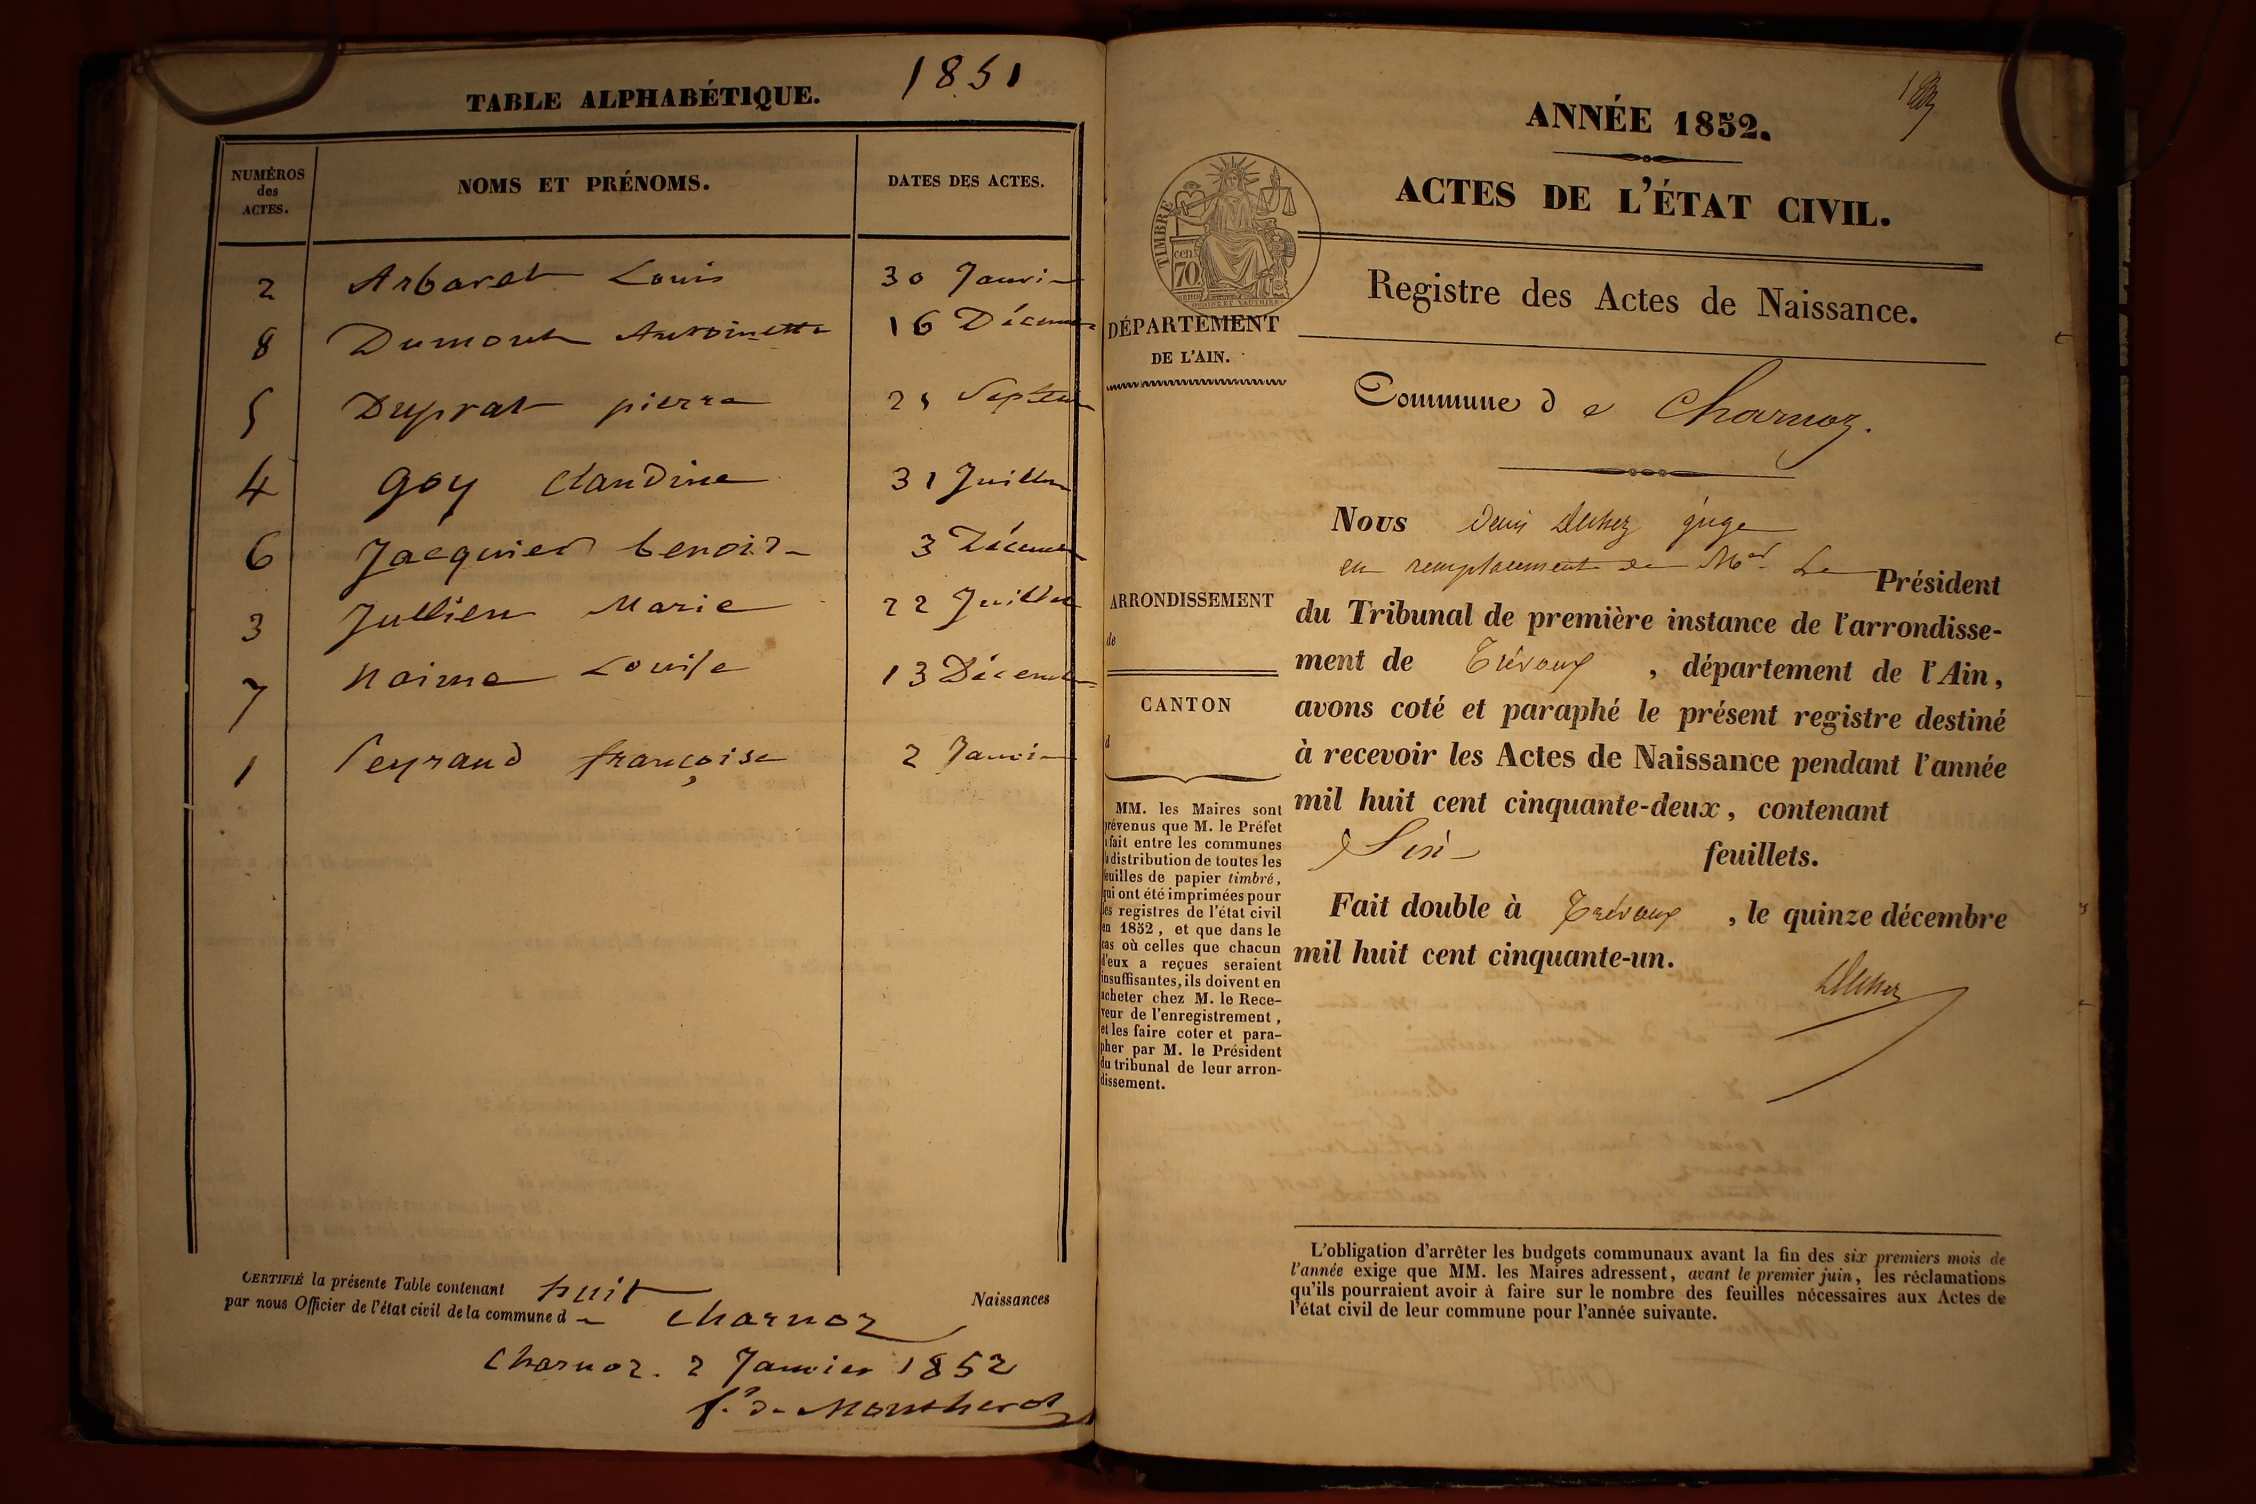 TABLE ALPHABÉTIQUE. 1851
NUMÉROS
des
ACTES.
NOMS ET PRÉNOMS.
DATES DES ACTES.
2 Arbaret Louis 30 Janvi
8 Dumont Antoinette 16 Décem
5 Duprat pierre Septem
4 Goy Claudine 31 Juillet
6 Jacquier benoit 3 Décem
3 Jullien Marie 22 Juillet
7 Louise 13 Décemb
1 Peyraud françoise 2 Janvi
CERTIFIÉ la présente Table contenant huit Naissances
par nous Officier de l'état civil de la commune d e Charnoz
Charnoz. 2 Janvier 1852
f. de Montherot
ANNÉE 1852.
ACTES DE L'ÉTAT CIVIL.
TIMBRE
cen
70.
Registre des Actes de Naissance.
DÉPARTEMENT
DE L'AIN.
Commune d e Charnoz.
ARRONDISSEMENT
de
CANTON
d
MM. les Maires sont
prévenus que M. le Préfet
a fait entre les communes
la distribution de toutes les
feuilles de papier timbré,
qui ont été imprimées pour
les registres de l'état civil
en 1852, et que dans le
cas où celles que chacun
d'eux a reçues seraient
insuffisantes, ils doivent en
acheter chez M. le Rece-
veur de l'enregistrement,
et les faire coter et para-
pher par M. le Président
du tribunal de leur arron-
dissement.
Nous Denis juge
en remplacement de Mr Le Président
du Tribunal de première instance de l'arrondisse-
ment de Trévoux, département de l'Ain,
avons coté et paraphé le présent registre destiné
à recevoir les Actes de Naissance pendant l'année
mil huit cent cinquante-deux, contenant
Six feuillets.
Fait double à Trévoux, le quinze décembre
mil huit cent cinquante-un.
L'obligation d'arrêter les budgets communaux avant la fin des six premiers mois de
l'année exige que MM. les Maires adressent, avant le premier juin, les réclamations
qu'ils pourraient avoir à faire sur le nombre des feuilles nécessaires aux Actes de
l'état civil de leur commune pour l'année suivante.